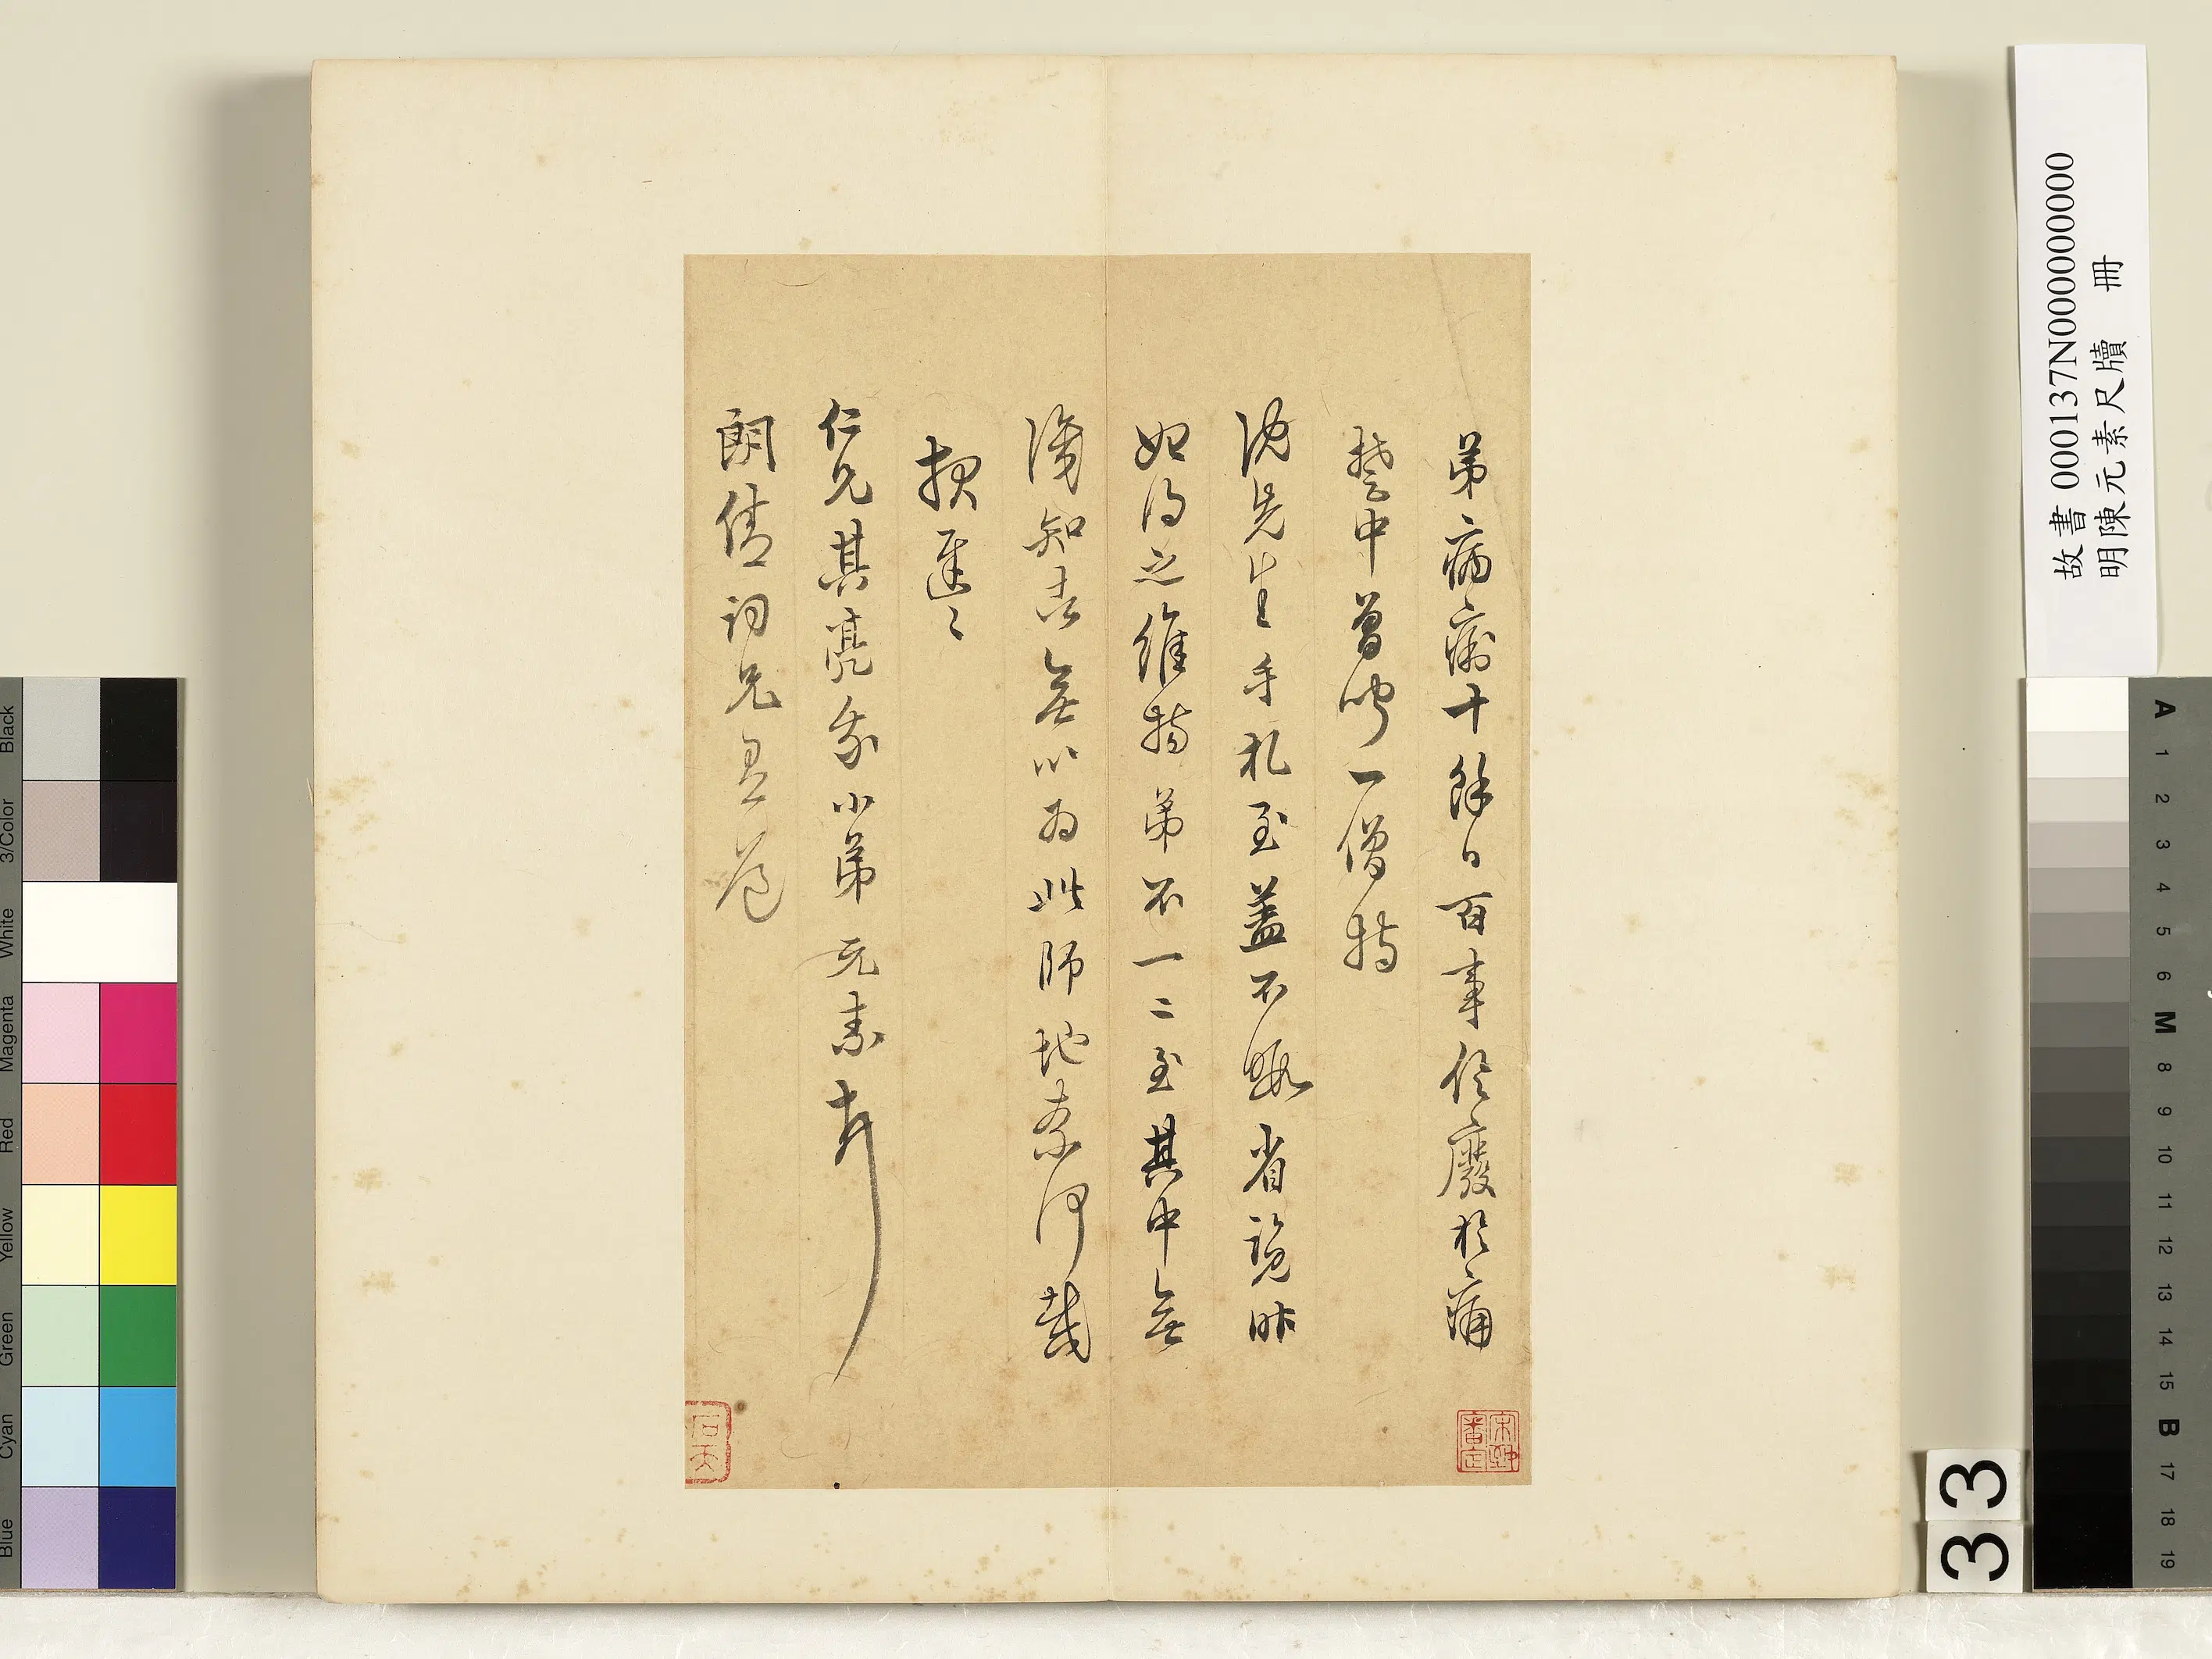 弟病瘍十餘日百事俱廢於痛
楚中曾聞一僧持
沈先生手札至蓋不暇省覽昨
始得之維揚弟不一二至其中無
淺知者無以為此師地奈何哉
拱遲〻
仁兄其亮我小弟元素
朗倩詞兄
故書 000137N000000000
明陳元素尺牘 冊
33
Black
3/Color
White
Magenta
Red
Yellow
Green
Cyan
Blue
A
1
2
3
4
5
6
M
8
9
10
11
12
13
14
15
B
17
18
19